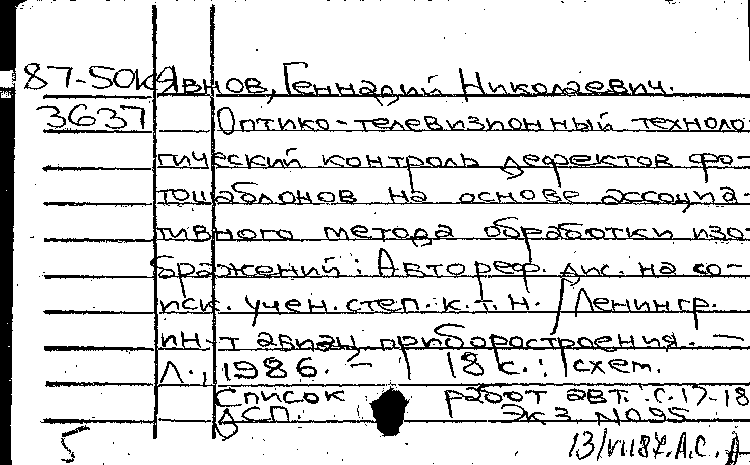 87-50К Явнов, Геннадий Николаевич.
3637 Оптико-телевизионный техноло-
гический контроль дефектов фо-
тошаблонов на основе ассоциа-
тивного метода обработки изо-
бражений: Автореф. дис. на со-
иск. учен. степ. к.т.н. / Ленингр.
ин-т авиац. приборостроения. —
Л., 1986. — 18 с.: схем.
Список работ авт.: с. 17-18
ДСП. Экз. N095
5 13/VII87. А.С. Д